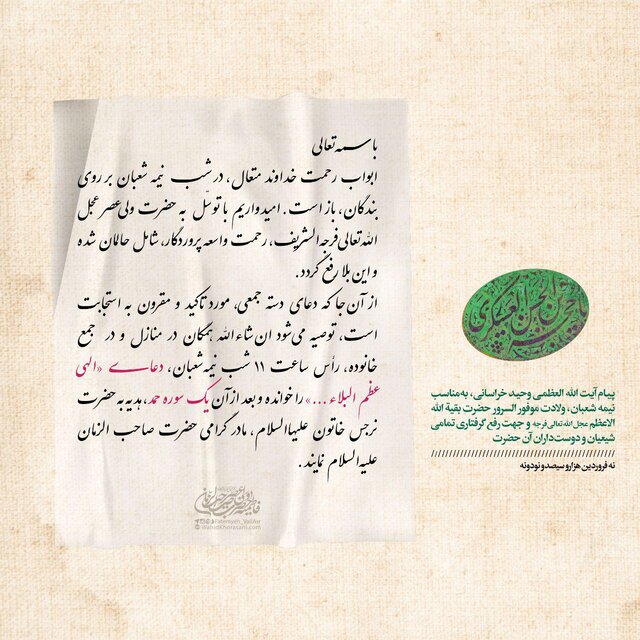 باسمه تعالی
ابواب رحمت خداوند متعال، در شب نیمه شعبان بر روی
بندگان، باز است. امیدواریم با توسّل به حضرت ولی عصر عجل
الله تعالی فرجه الشریف، رحمت واسعه پروردگار، شامل حالمان شده
و این بلا رفع گردد.
از آن جا که دعای دسته جمعی، مورد تاکید و مقرون به استجابت
است، توصیه می‌شود ان شاء الله همگان در منازل و در جمع
خانوده، رأس ساعت ۱۱ شب نیمه شعبان، دعای «الهی
عظم البلاء ...» را خوانده و بعد از آن یک سوره حمد، هدیه به حضرت
نرجس خاتون علیها السلام، مادر گرامی حضرت صاحب الزمان
علیه السلام نمایند.
Fatemyeh_ValiAsr
WahidKhorasani.com
یا حجة بن الحسن العسکری
پیام آیت الله العظمی وحید خراسانی، به‌مناسب
نیمه شعبان، ولادت موفور السرور حضرت بقیة الله
الاعظم عجل الله تعالی فرجه و جهت رفع گرفتاری تمامی
شیعیان و دوست‌داران آن حضرت
نه فروردین هزار و سیصد و نود و نه